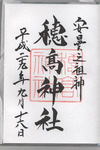 安曇之祖神
穂髙神社
平成二十五年九月十六日